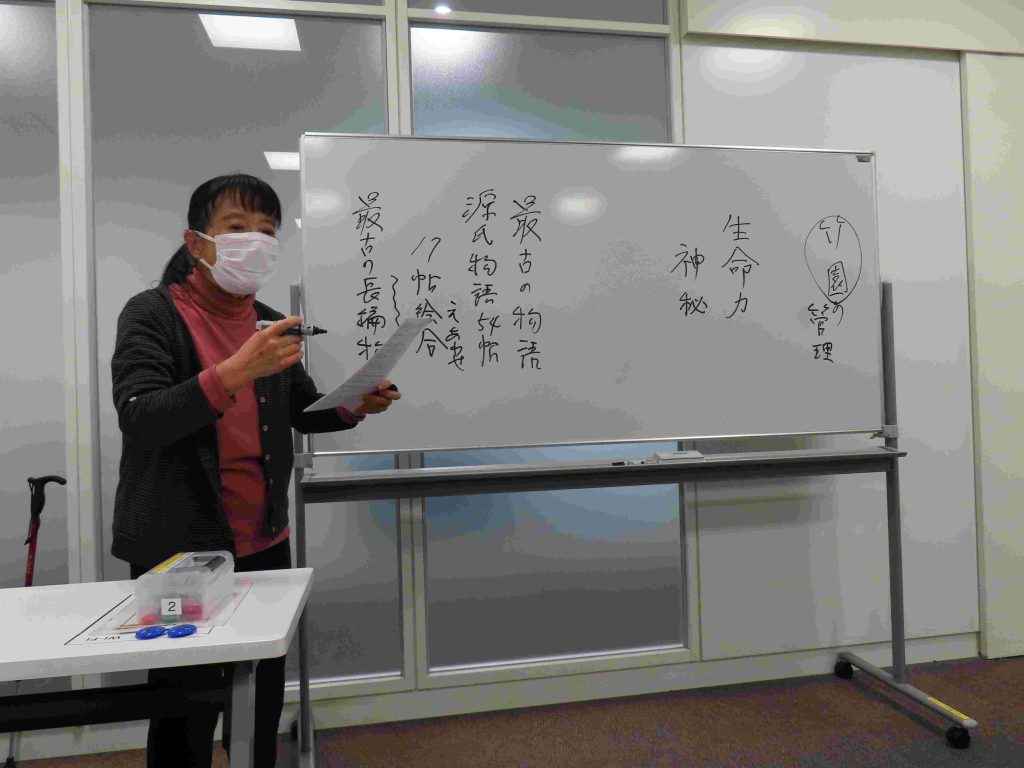 竹園の
管理
生命力
神秘
最古の物語
源氏物語54帖
17帖絵合
えあわせ
最古の長編物
2
Wi-Fi